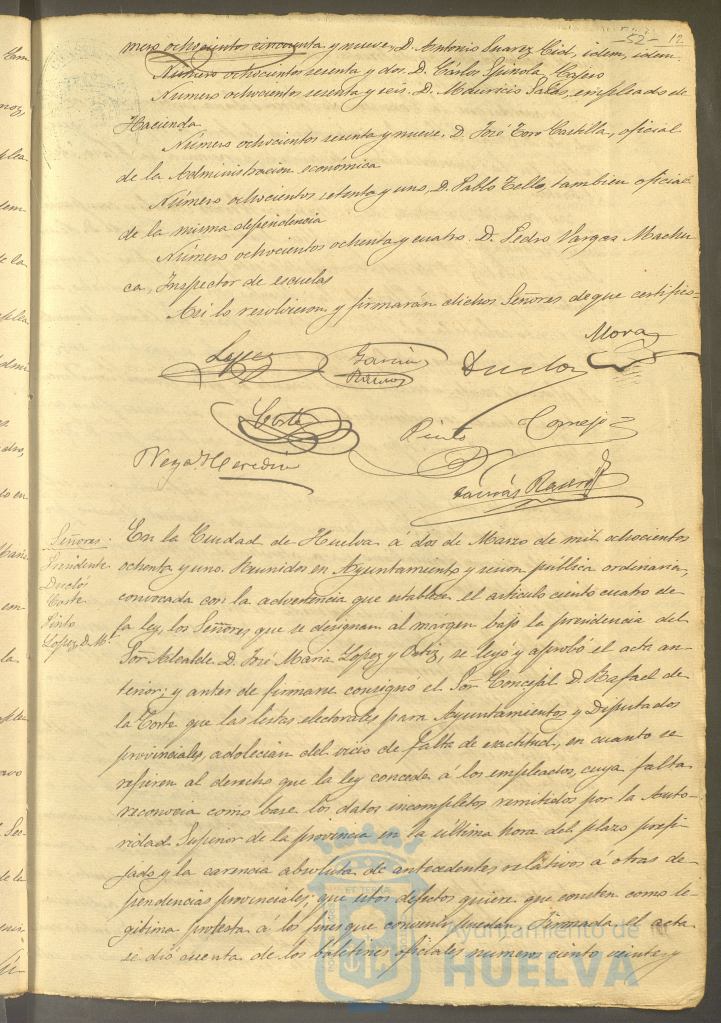 52- 12
mero ochocientos cincuenta y nueve, D. Antonio Suarez Cid, idem, idem.
Número ochocientos sesenta y dos. D. Cárlos Spinola
Número ochocientos sesenta y seis. D. Mauricio Salas, empleado de
Hacienda
Número ochocientos sesenta y nueve, D. José Toro Castilla, oficial
de la Administracion económica
Número ochocientos setenta y uno, D. Pablo Tello, tambien oficial
de la misma dependencia
Número ochocientos ochenta y cuatro. D. Pedro Vargas Machu-
ca, Inspector de escuelas
Asi lo resolvieron y firmarán dichos Señores de que certifico=
Mora
Lopez
Garcia
Ramos
Duclos
Corte
Pinto
Cornejo
Vega Heredia
Señores.
Presidente
Duclós
Corte
Pinto
Lopez, D. Ml.
En la Ciudad de Huelva á dos de Marzo de mil ochocientos
ochenta y uno. Reunidos en Ayuntamiento y sesion pública ordinaria,
convocada con la advertencia que establece el articulo ciento cuatro de
la ley, los Señores que se designan al margen bajo la presidencia del
Sor. Alcalde D. José Maria Lopez y Ortiz, se leyó y aprobó el acta an-
terior; y antes de firmarse consignó el Sor. Concejal D. Rafael de
la Corte que las listas electorales para Ayuntamientos y Diputados
provinciales, adolecian del vicio de falta de exactitud, en cuanto se
refieren al derecho que la ley concede á los empleados, cuya falta
reconocia como base los datos incompletos remitidos por la Auto-
ridad Superior de la provincia en la última hora del plazo prefi-
jado y la carencia absoluta de antecedentes relativos á otras de-
pendencias provinciales; que estos defectos quiere que consten como le-
gitima protesta á los fines que convenir puedan. Firmada el acta
se dió cuenta de los boletines oficiales números ciento veinte y
Ayuntamiento de
HUELVA